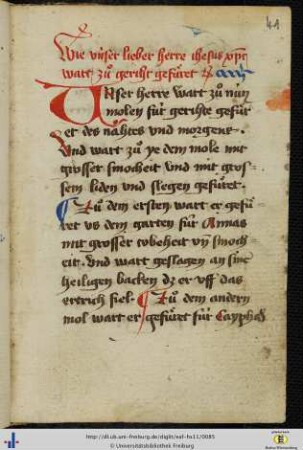 41
Wie vnser lieber herre ihesus xpc
wart zů geriht gefüret
Vnser herre wart zů nün
molen für gerihte gefür
et des nahtes vnd morgens.
Vnd wart zů ye dem mole mit
grosser smocheit vnd mit gros-
sem liden vnd slegen gefüret.
Zů dem ersten wart er gefü
ret vs dem garten für Annas
mit grosser robeheit vn smoch
eit. Vnd wart geslagen an sine
heiligen backen dz er vff das
ertrich fiel. Zů dem andern
mol wart er gefüret für Cayphas
http://dl.ub.uni-freiburg.de/diglit/saf-hs11/0085
© Universitätsbibliothek Freiburg